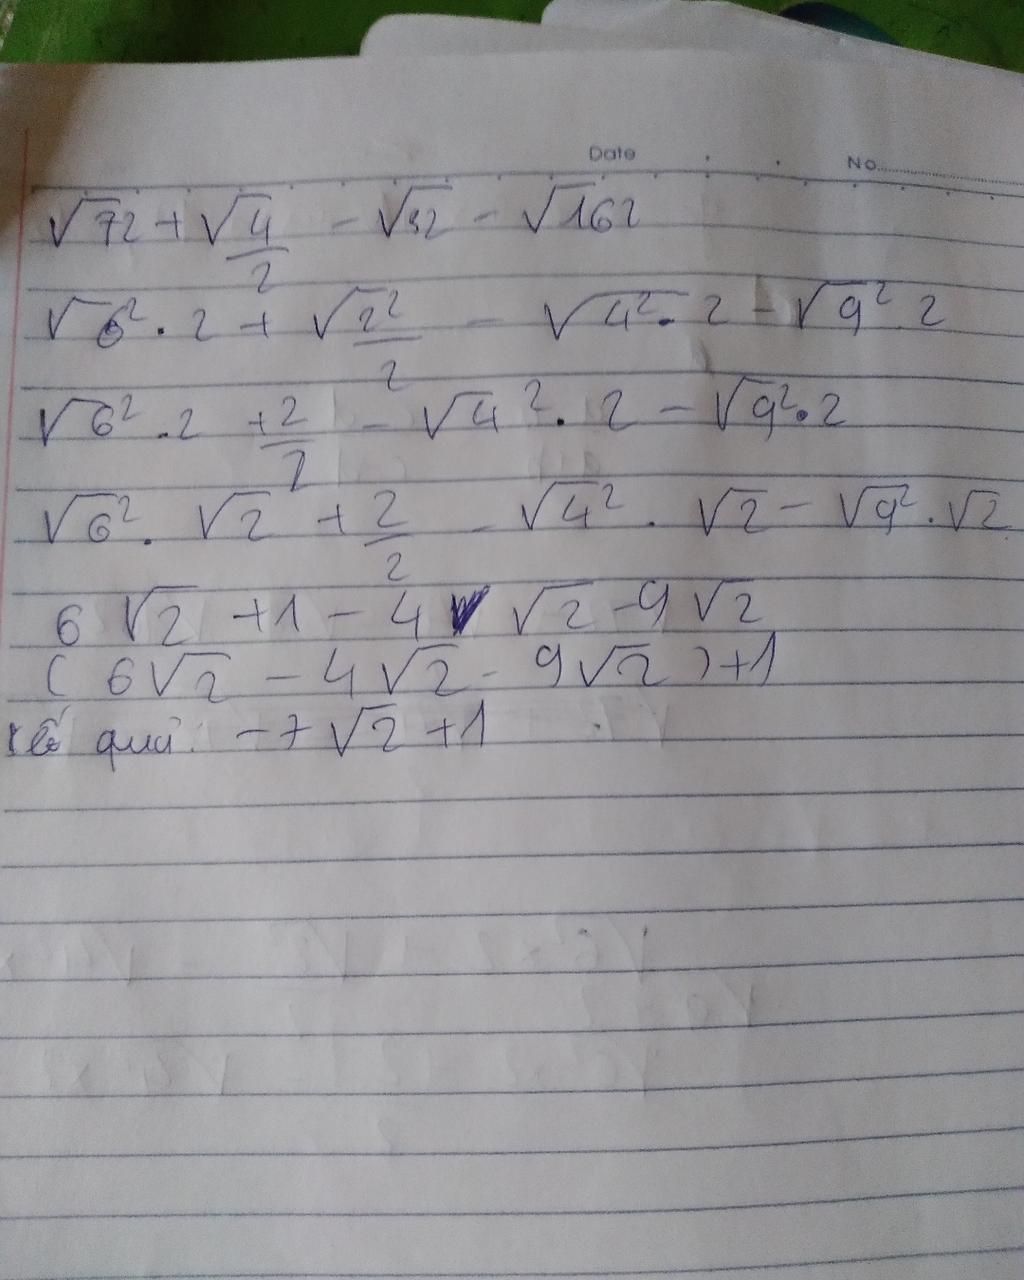 Date No
√72 + √4/2 - √32 - √162
√6² . 2 + √2²/2 - √4² . 2 - √9² 2
√6² . 2 + 2/2 - √4² . 2 - √9² . 2
√6² . √2 + 2/2 - √4² . √2 - √9² . √2
6 √2 + 1 - 4 √2 - 9 √2
( 6√2 - 4√2 - 9√2 ) + 1
quả: -7 √2 + 1